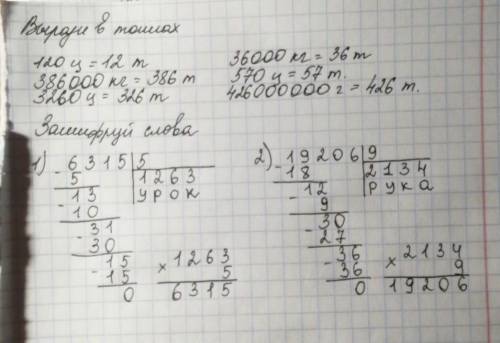 Вырази в тоннах
120 ц = 12 т
36000 кг = 36 т
386000 кг = 386 т
570 ц = 57 т.
3260 ц = 326 т
426000000 г = 426 т.
Зашифруй слова
1) - 6315 | 5
5 | 1263
- 13 | УРОК
10
- 31
30
- 15
15
0
× 1263
5
6315
2) - 19206 | 9
18 | 2134
- 12 | РУКА
9
- 30
27
- 36
36
0
× 2134
9
19206